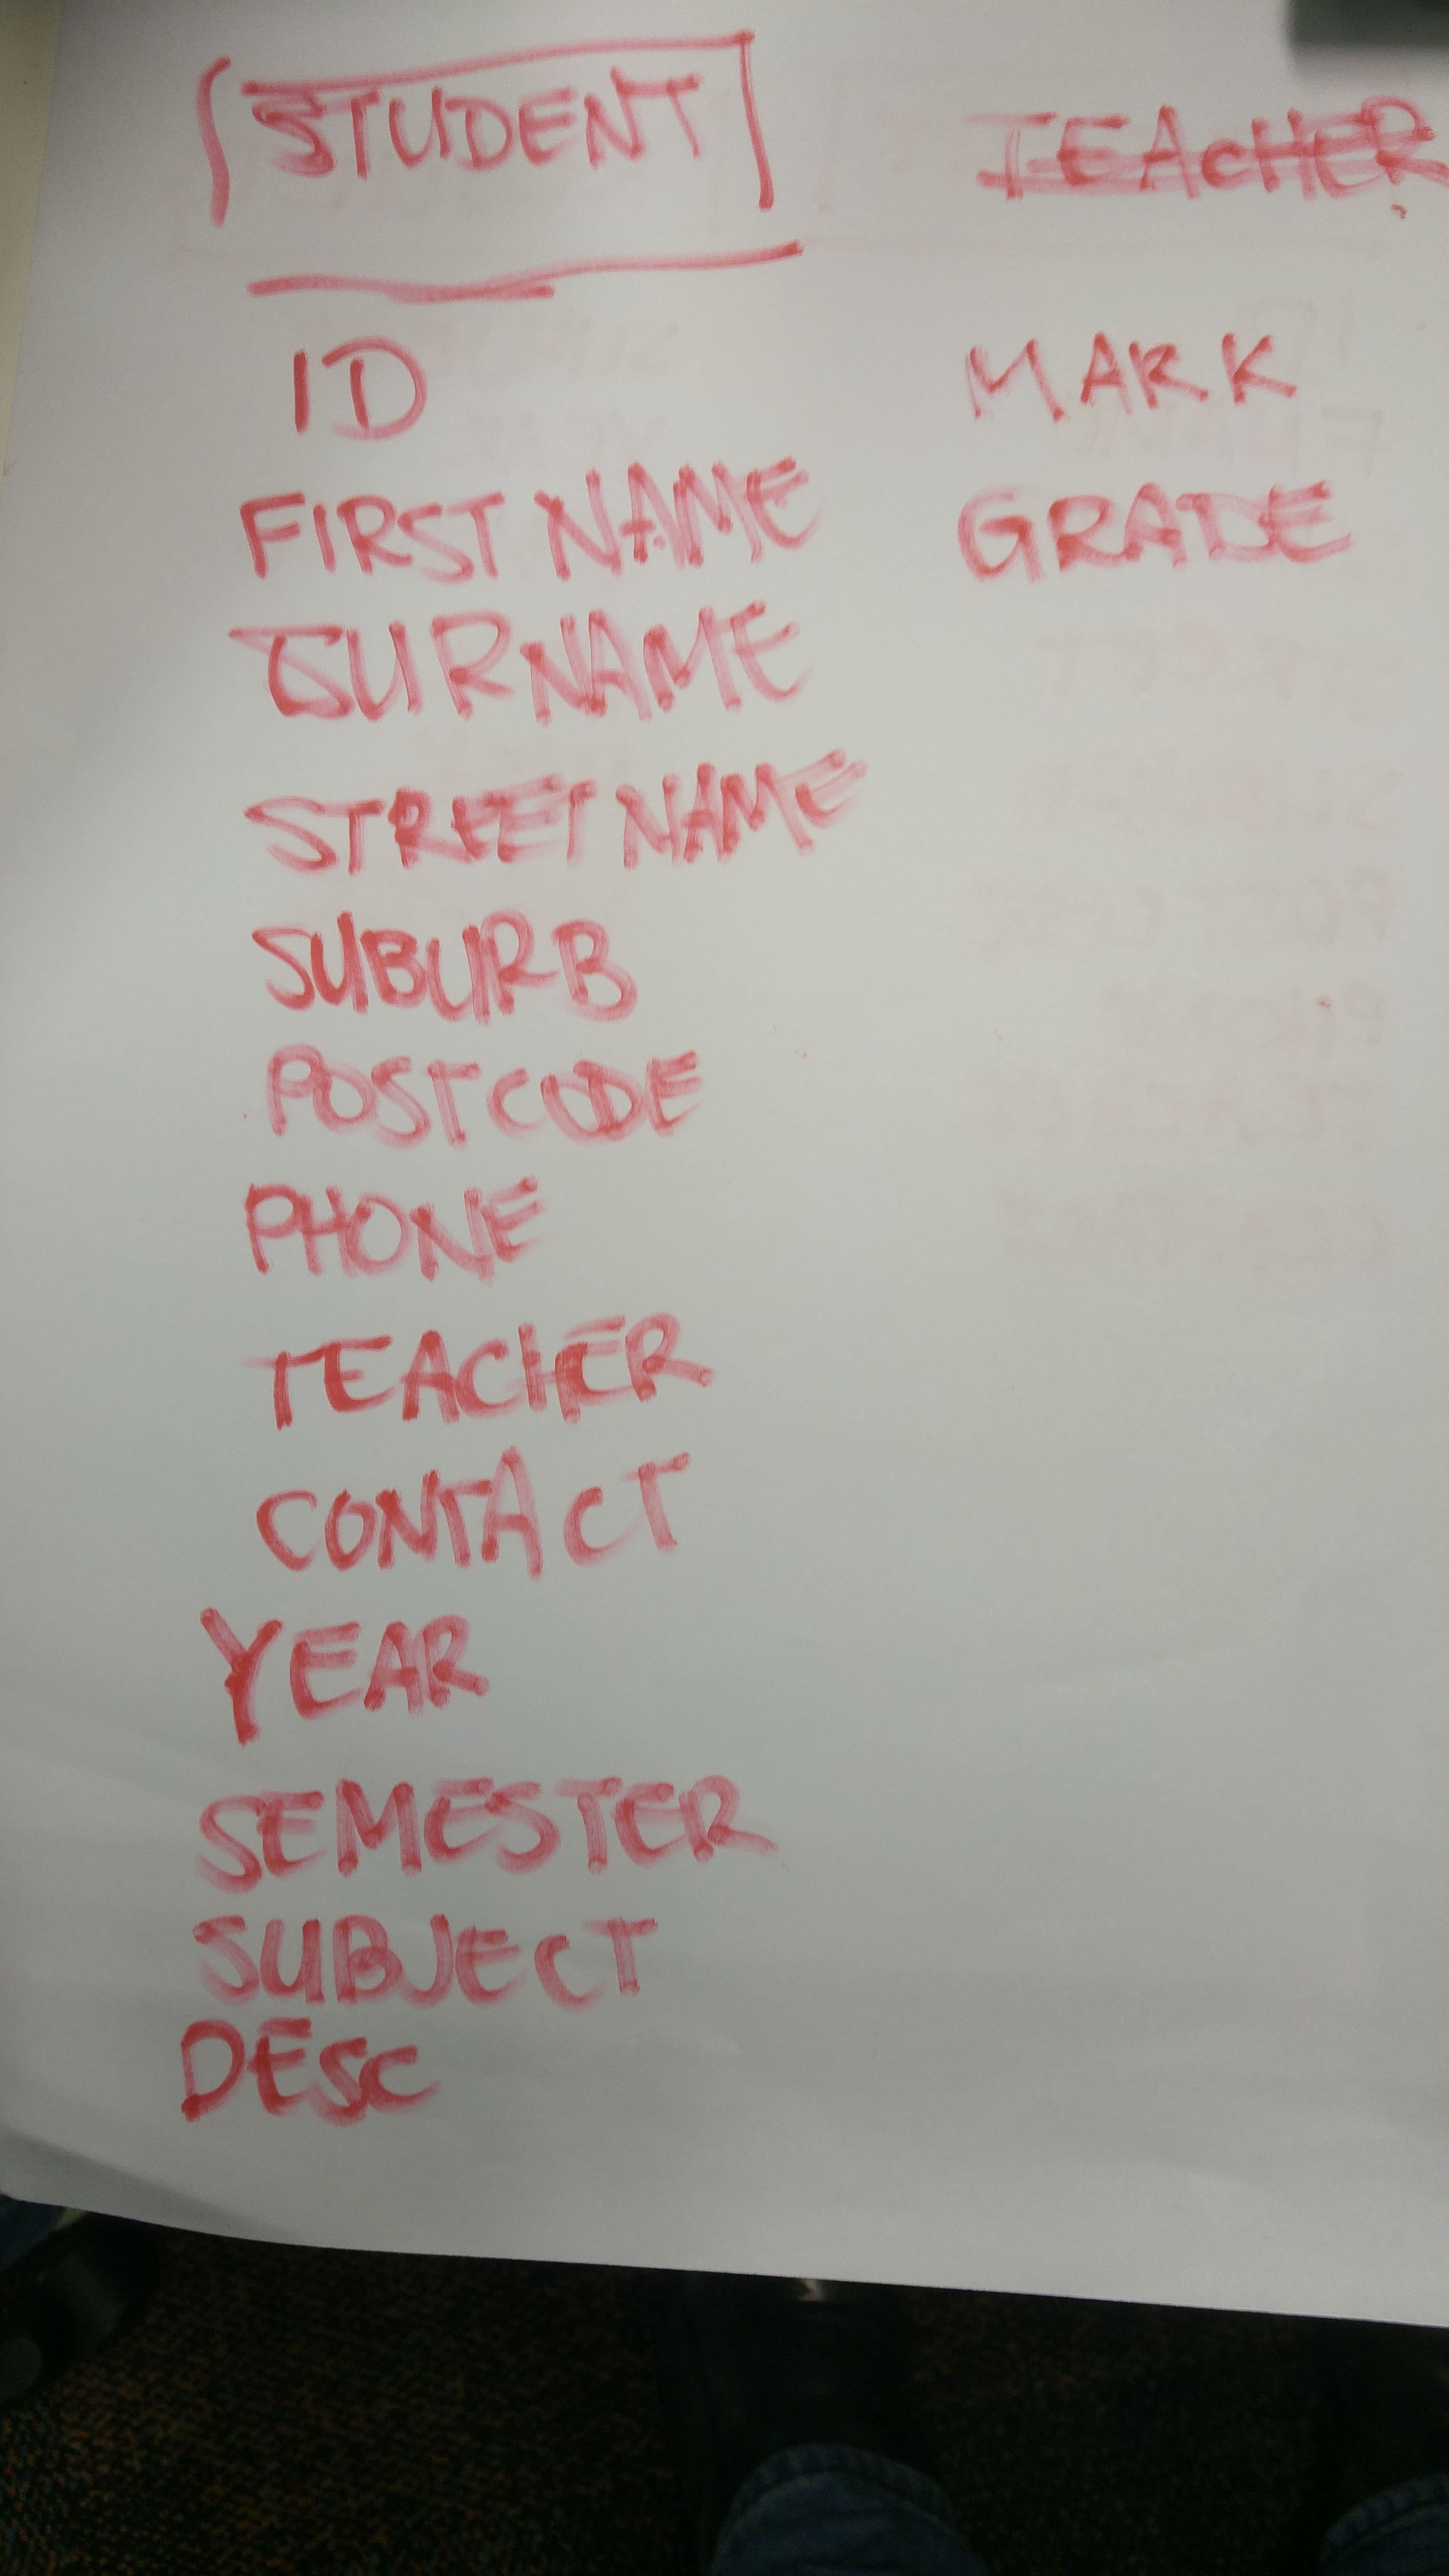 STUDENT
TEACHER
ID
FIRST NAME
SURNAME
STREET NAME
SUBURB
POSTCODE
PHONE
TEACHER
CONTACT
YEAR
SEMESTER
SUBJECT
DESC
MARK
GRADE